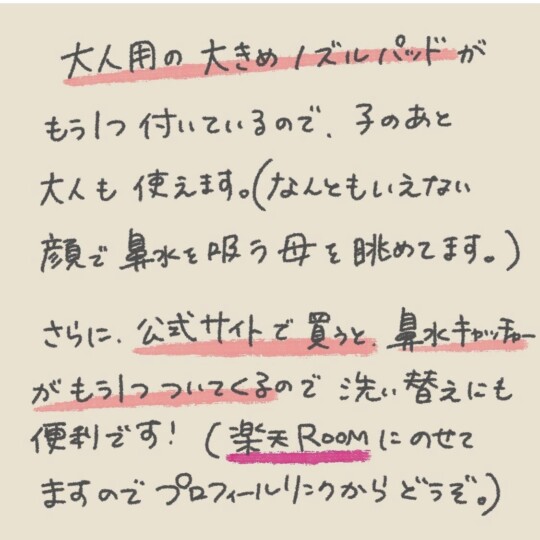 大人用の大きめノズルパッドが
もう1つ付いているので、子のあと
大人も使えます。(なんともいえない
顔で鼻水を吸う母を眺めてます。)
さらに、公式サイトで買うと、鼻水キャッチャー
がもう1つついてくるので洗い替えにも
便利です!(楽天ROOMにのせて
ますのでプロフィールリンクからどうぞ。)